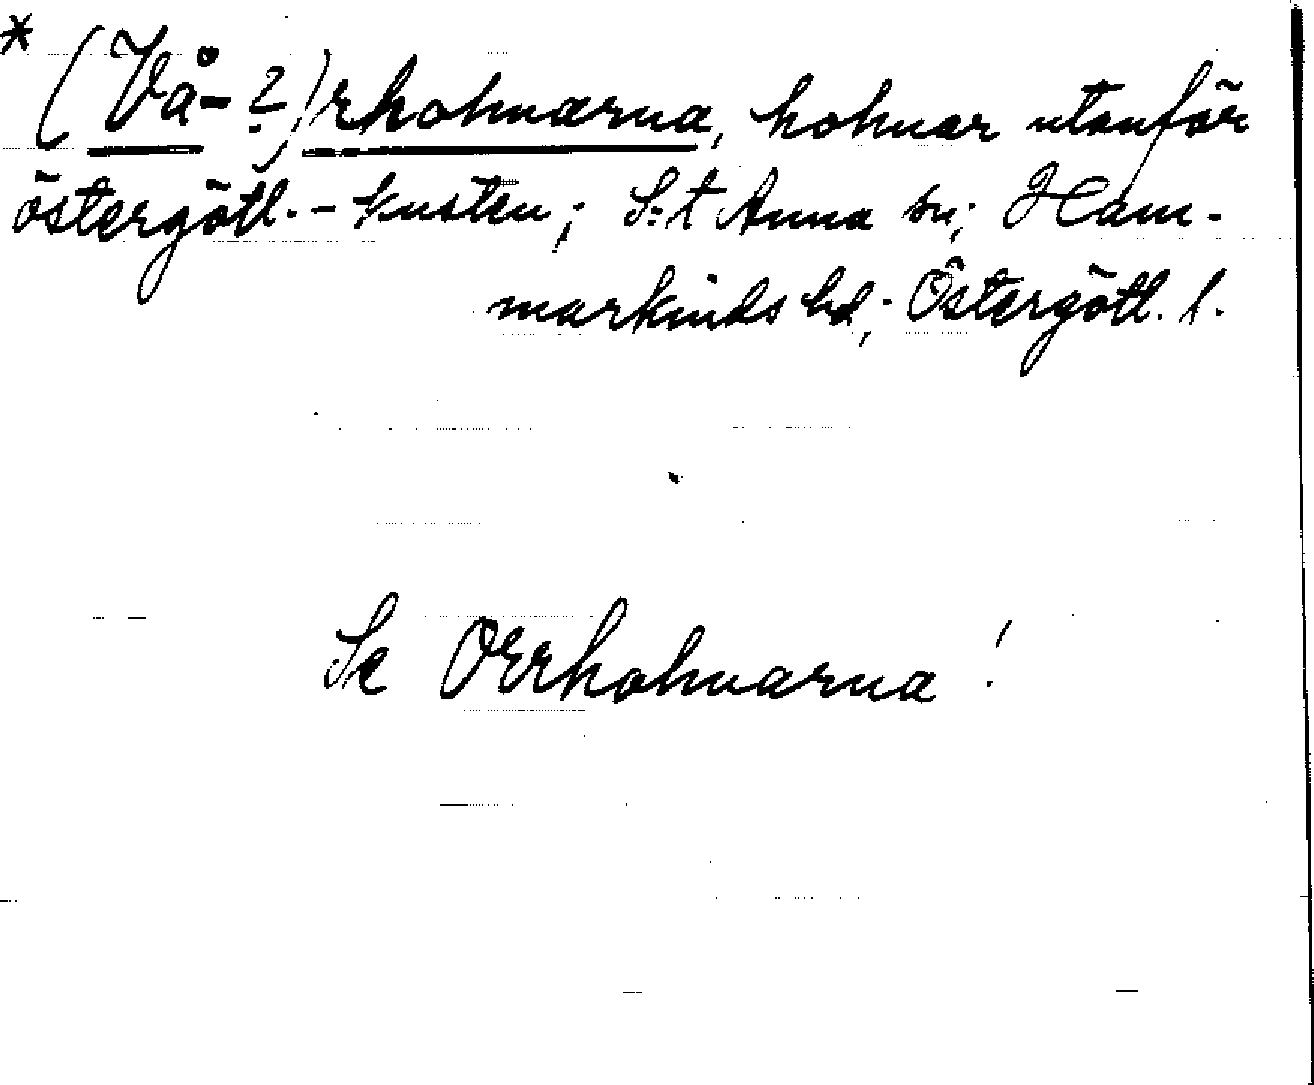 * (Vå-?)rholmarna, holmar utanför
östergötl.-kusten; S:t Anna sn; Ham-
markinds hd; Östergötl. l.
Se Orrholmarna!